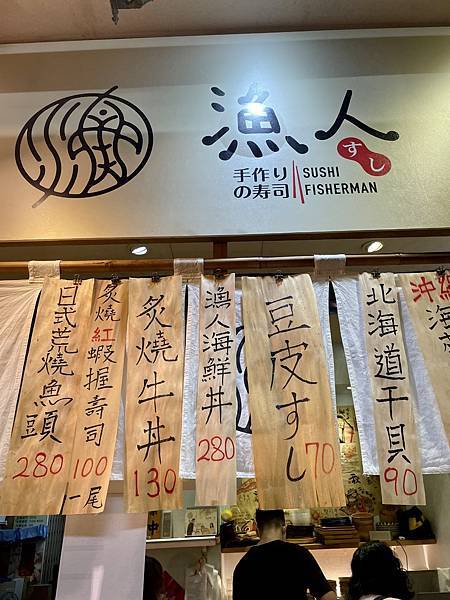 漁人
すし
手作り
の寿司
SUSHI
FISHERMAN
日式荒燒魚頭
280
炙燒紅蝦握壽司
100
一尾
炙燒牛丼
130
漁人海鮮丼
280
豆皮すし
70
北海道干貝
90
沖繩
海